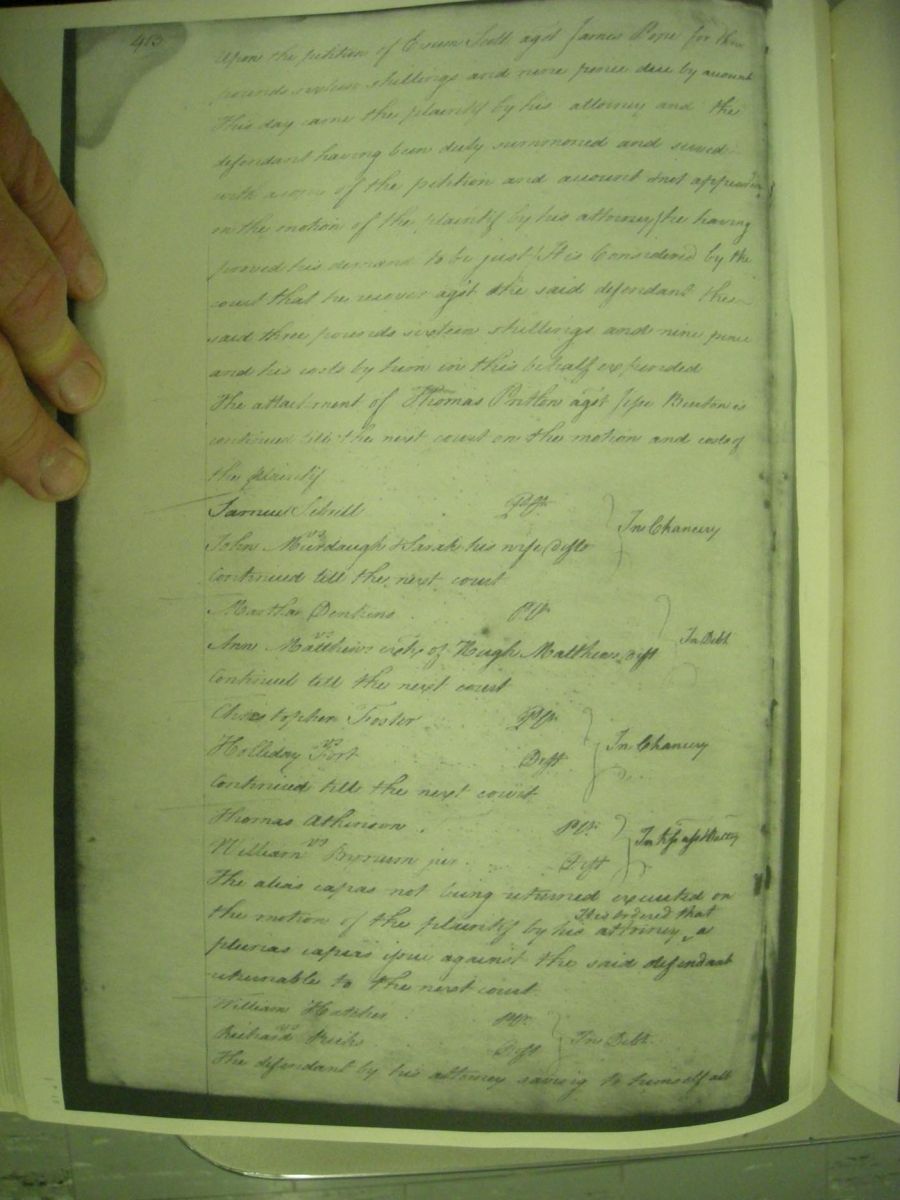 413
Upon the petition of Exum Scott agst James Pope for three
pounds sixteen shillings and nine pence due by account
This day came the plaintif by his attorney and the
defendant having been duly summoned and served
with a copy of the petition and account & not appearing
on the motion of the plaintif by his attorney (he having
proved his demand to be just) It is Considered by the
court that he recover agst the said defendant the
said three pounds sixteen shillings and nine pence
and his costs by him in this behalf expended
The attachment of Thomas agst Jesse is
continued till the next court on the motion and costs of
the plaintif
Samuel Plf
vs
In Chancery
John Murdaugh & Sarah his wife Defts
Continued till the next court
Martha Jenkins Plf
vs
In Debt
Ann Matthews of Hugh Matthews Deft
Continued till the next court
Christopher Foster Plf
vs
In Chancery
Holliday Fort Deft
Continued till the next court
Thomas Atkinson Plf
vs
In Tresps asst & Battry
William Bynum junr Deft
The alias capias not being returned executed on
It is ordered that
the motion of the plaintif by his attorney ‸ a
plurias capias issue against the said defendant
returnable to the next court
William Hatcher Plf
vs
In Debt
Richard Deft
The defendant by his attorney saving to himself all